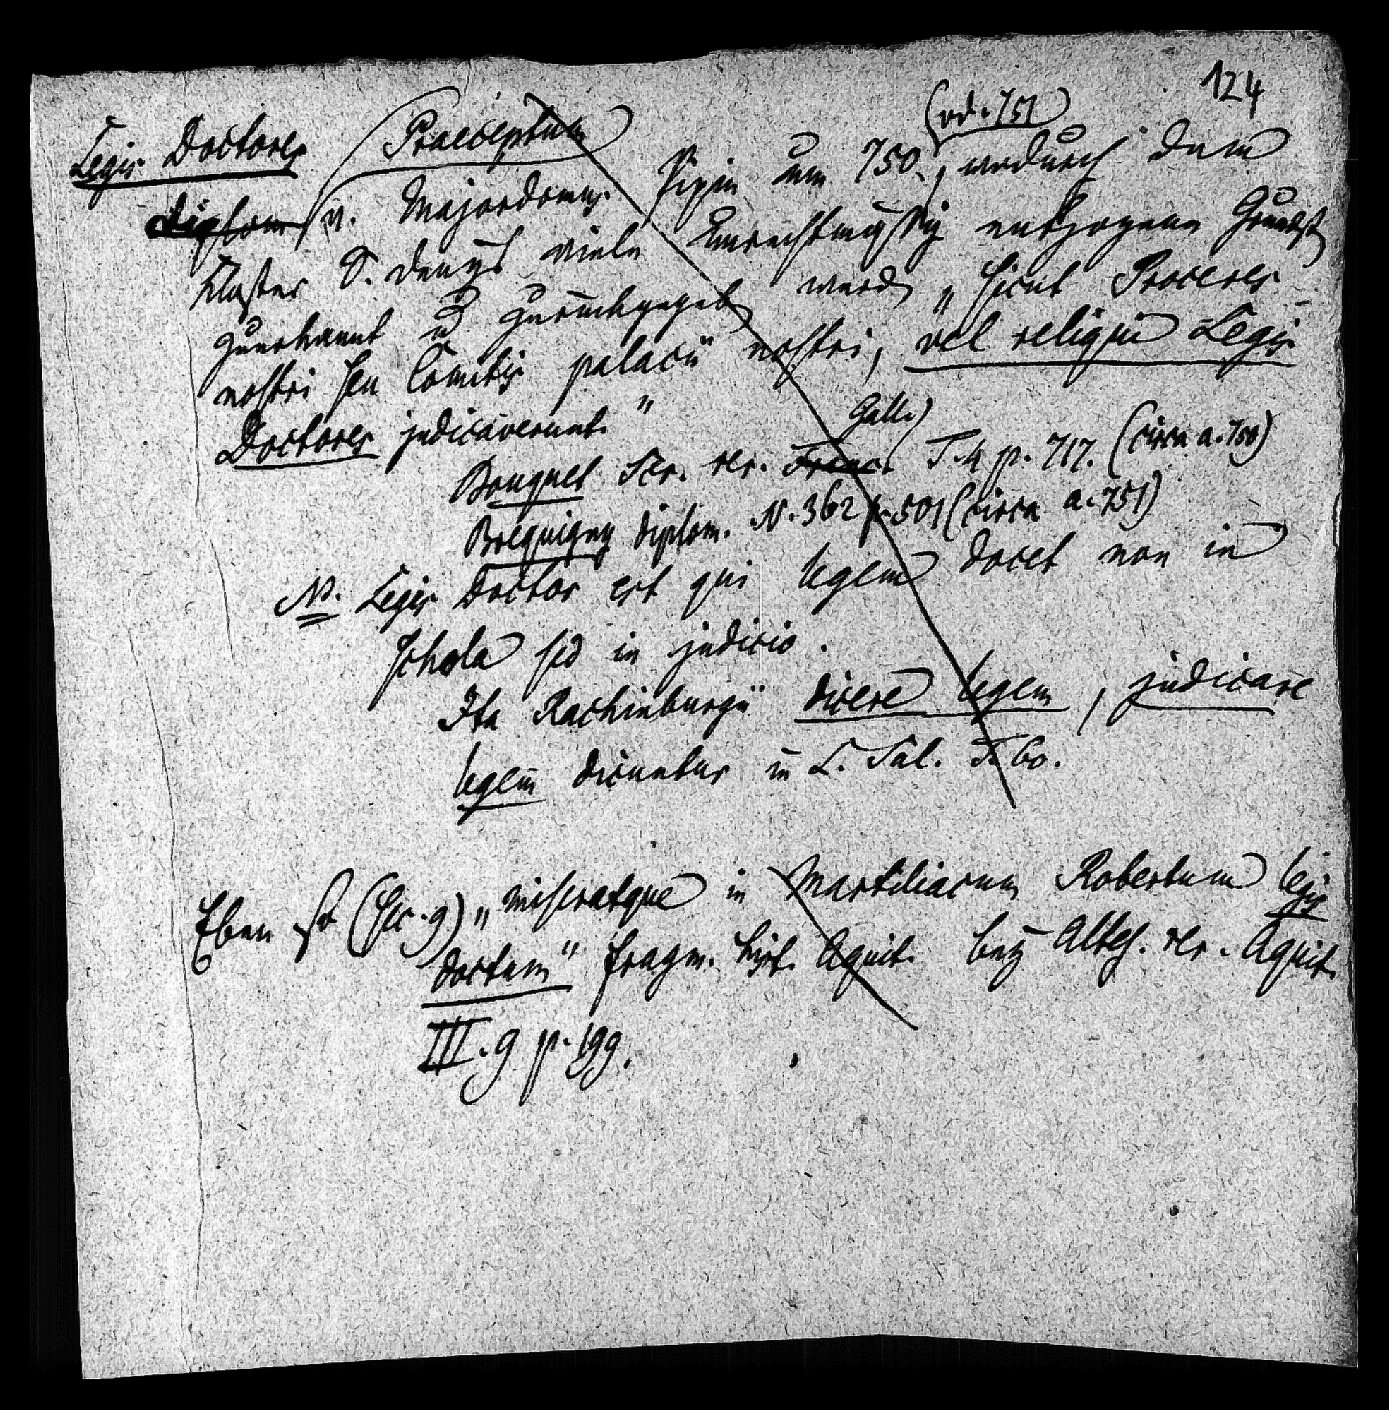 124
Legis Doctores (Praeceptum) (od. 751)
Diplom v. Majordomus Pipin um 750., wodurch dem
Kloster S. Denys viele unrechtmäßig entzogene Grundst
zuerkannt u zurückgegeb werd „sicut Proceres
nostri seu Comitis palacii nostri, vel reliqui Legis
Doctores judicaverunt."
Bouquet Scr. rer. Franc. Gall. T. 4 p. 717. (circa a. 750)
Brequigny diplom. N. 362 p. 501 (circa a. 751)
N. Legis Doctor est qui legem docet non in
Schola sed in judicio.
Ita Rachinburgii dicere legem, judicare
legem dicuntur in L. Sal. T. 60.
Eben so (Sec. 9) „misitque in Martiliacum Robertum legis
doctum" fragm. hist. Aquit. bey Altes. rer. Aquit.
III. 9 p. 199.